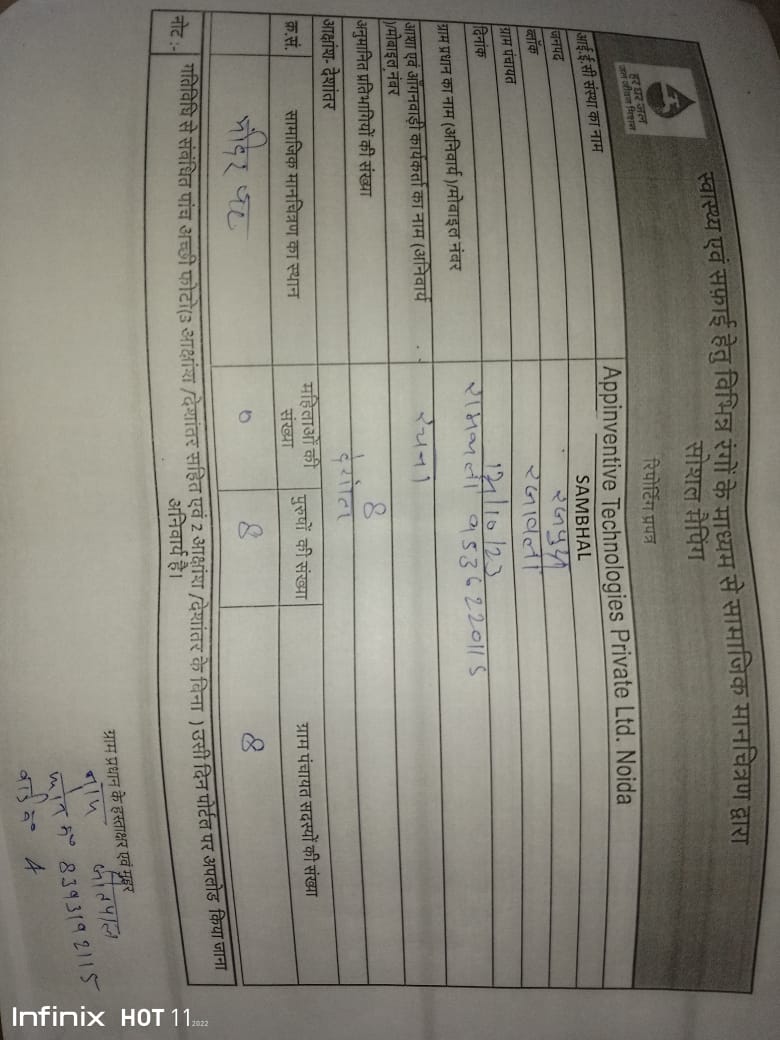 स्वास्थ्य एवं सफ़ाई हेतु विभिन्न रंगों के माध्यम से सामाजिक मानचित्रण द्वारा
सोशल मैपिंग
रिपोर्टिंग प्रपत्र
हर घर जल
जल जीवन मिशन
आई.ई.सी संस्था का नाम Appinventive Technologies Private Ltd. Noida
जनपद SAMBHAL
ब्लॉक रजपुरा
ग्राम पंचायत
दिनांक /10/23
ग्राम प्रधान का नाम (अनिवार्य )/मोबाइल नंबर रामकली 9536220115
आशा एवं आँगनवाड़ी कार्यकर्ता का नाम (अनिवार्य रचना
)/मोबाइल नंबर
अनुमानित प्रतिभागियों की संख्या 8
आक्षांश- देशांतर
क्र.सं. सामाजिक मानचित्रण का स्थान महिलाओं की संख्या पुरुषों की संख्या ग्राम पंचायत सदस्यों की संख्या
मंदिर पर 0 8 8
नोट :- गतिविधि से संबंधित पांच अच्छी फोटो(3 आक्षांश /देशांतर सहित एवं 2 आक्षांश /देशांतर के विना ) उसी दिन पोर्टल पर अपलोड किया जाना
अनिवार्य है।
ग्राम प्रधान के हस्ताक्षर एवं मुहर
नाम
8393192115
वार्ड न० 4
Infinix HOT 11 2022